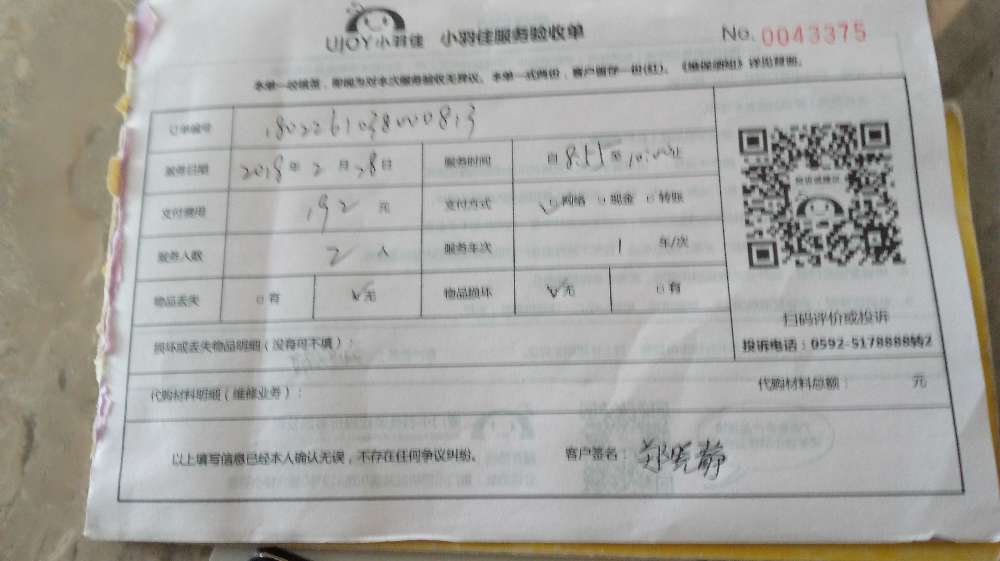 UJOY小羽佳 小羽佳服务验收单 No. 0043375
本单一经填签，即视为对本次服务验收无异议。本单一式两份，客户留存一份(红)。《维保细则》详见背面。
订单编号 1802261038000813
服务日期 2018年2月28日 服务时间 自8:55至10:00止
支付费用 192元 支付方式 网络 现金 转账
服务人数 2人 服务车次 1车/次
物品丢失 有 无 物品损坏 无 有
扫码评价或投诉
损坏或丢失物品明细（没有可不填）：
投诉电话：0592-5178888转2
代购材料明细（维修业务）： 代购材料总额： 元
以上填写信息已经本人确认无误，不存在任何争议纠纷。 客户签名：郑晓静